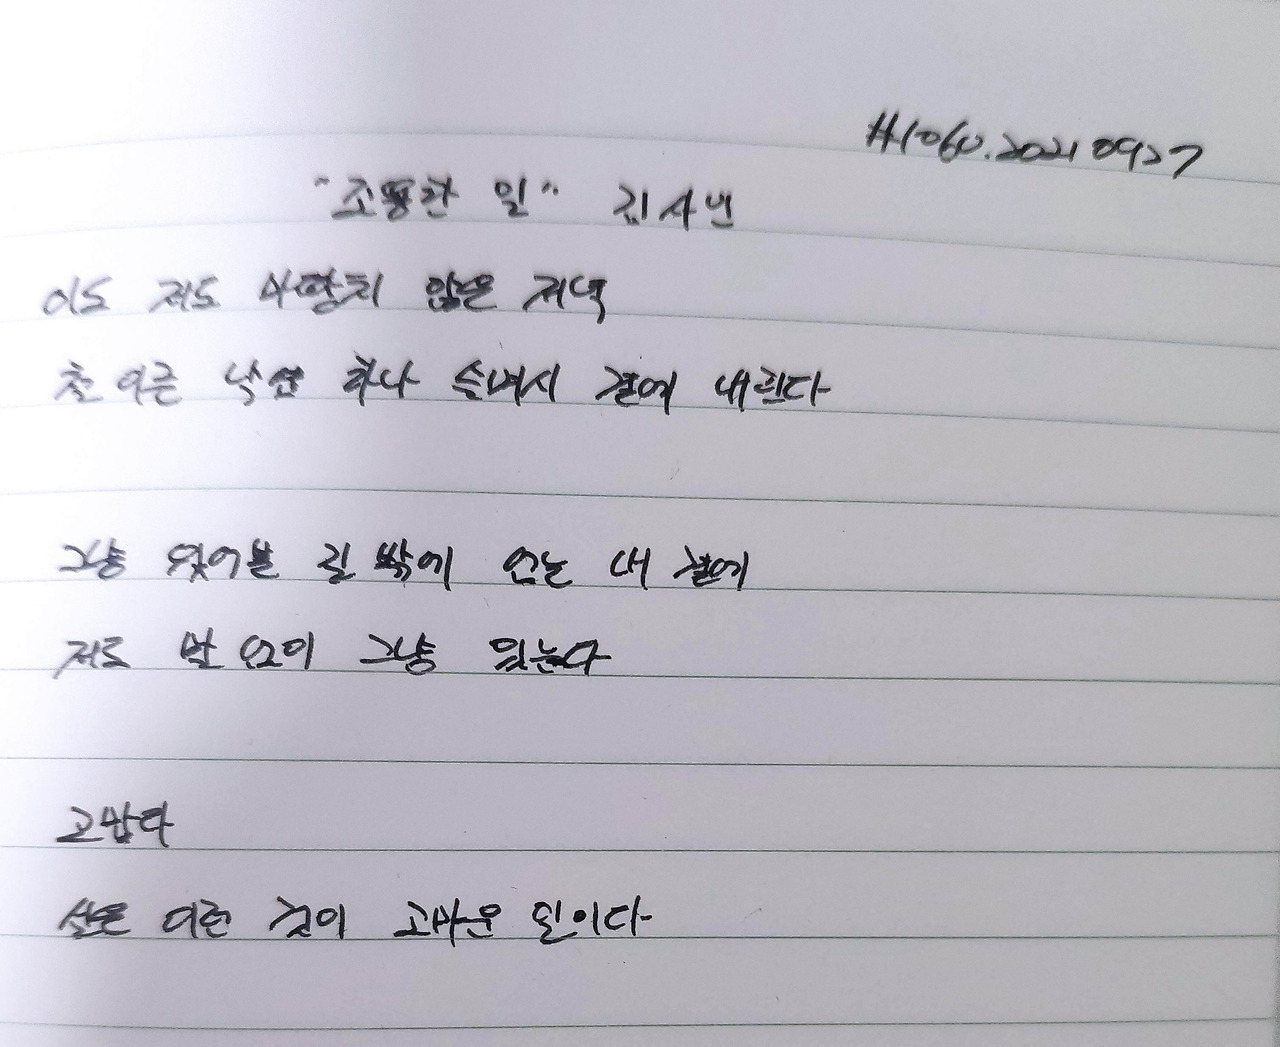 #1060.20210927
"조용한 일" 김사인
이도 저도 마땅치 않은 저녁
철 이른 낙엽 하나 슬며시 곁에 내린다
그냥 있어볼 길 밖에 없는 내 곁에
저도 말 없이 그냥 있는다
고맙다
실은 이런 것이 고마운 일이다